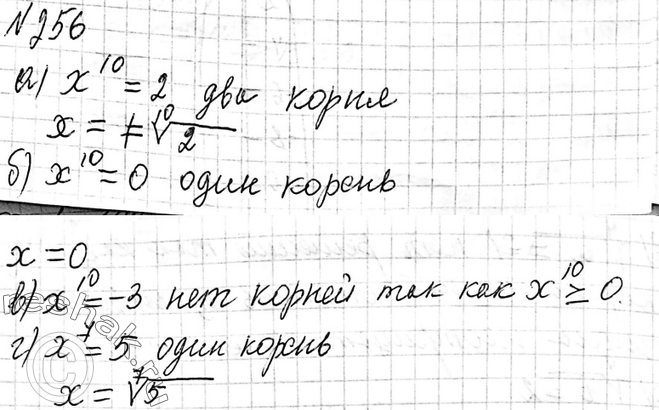 №256
а) x¹⁰ = 2 два корня
x = ±¹⁰√2
б) x¹⁰ = 0 один корень
x = 0
в) x¹⁰ = -3 нет корней так как x¹⁰ ≥ 0.
г) x⁷ = 5 один корень
x = ⁷√5